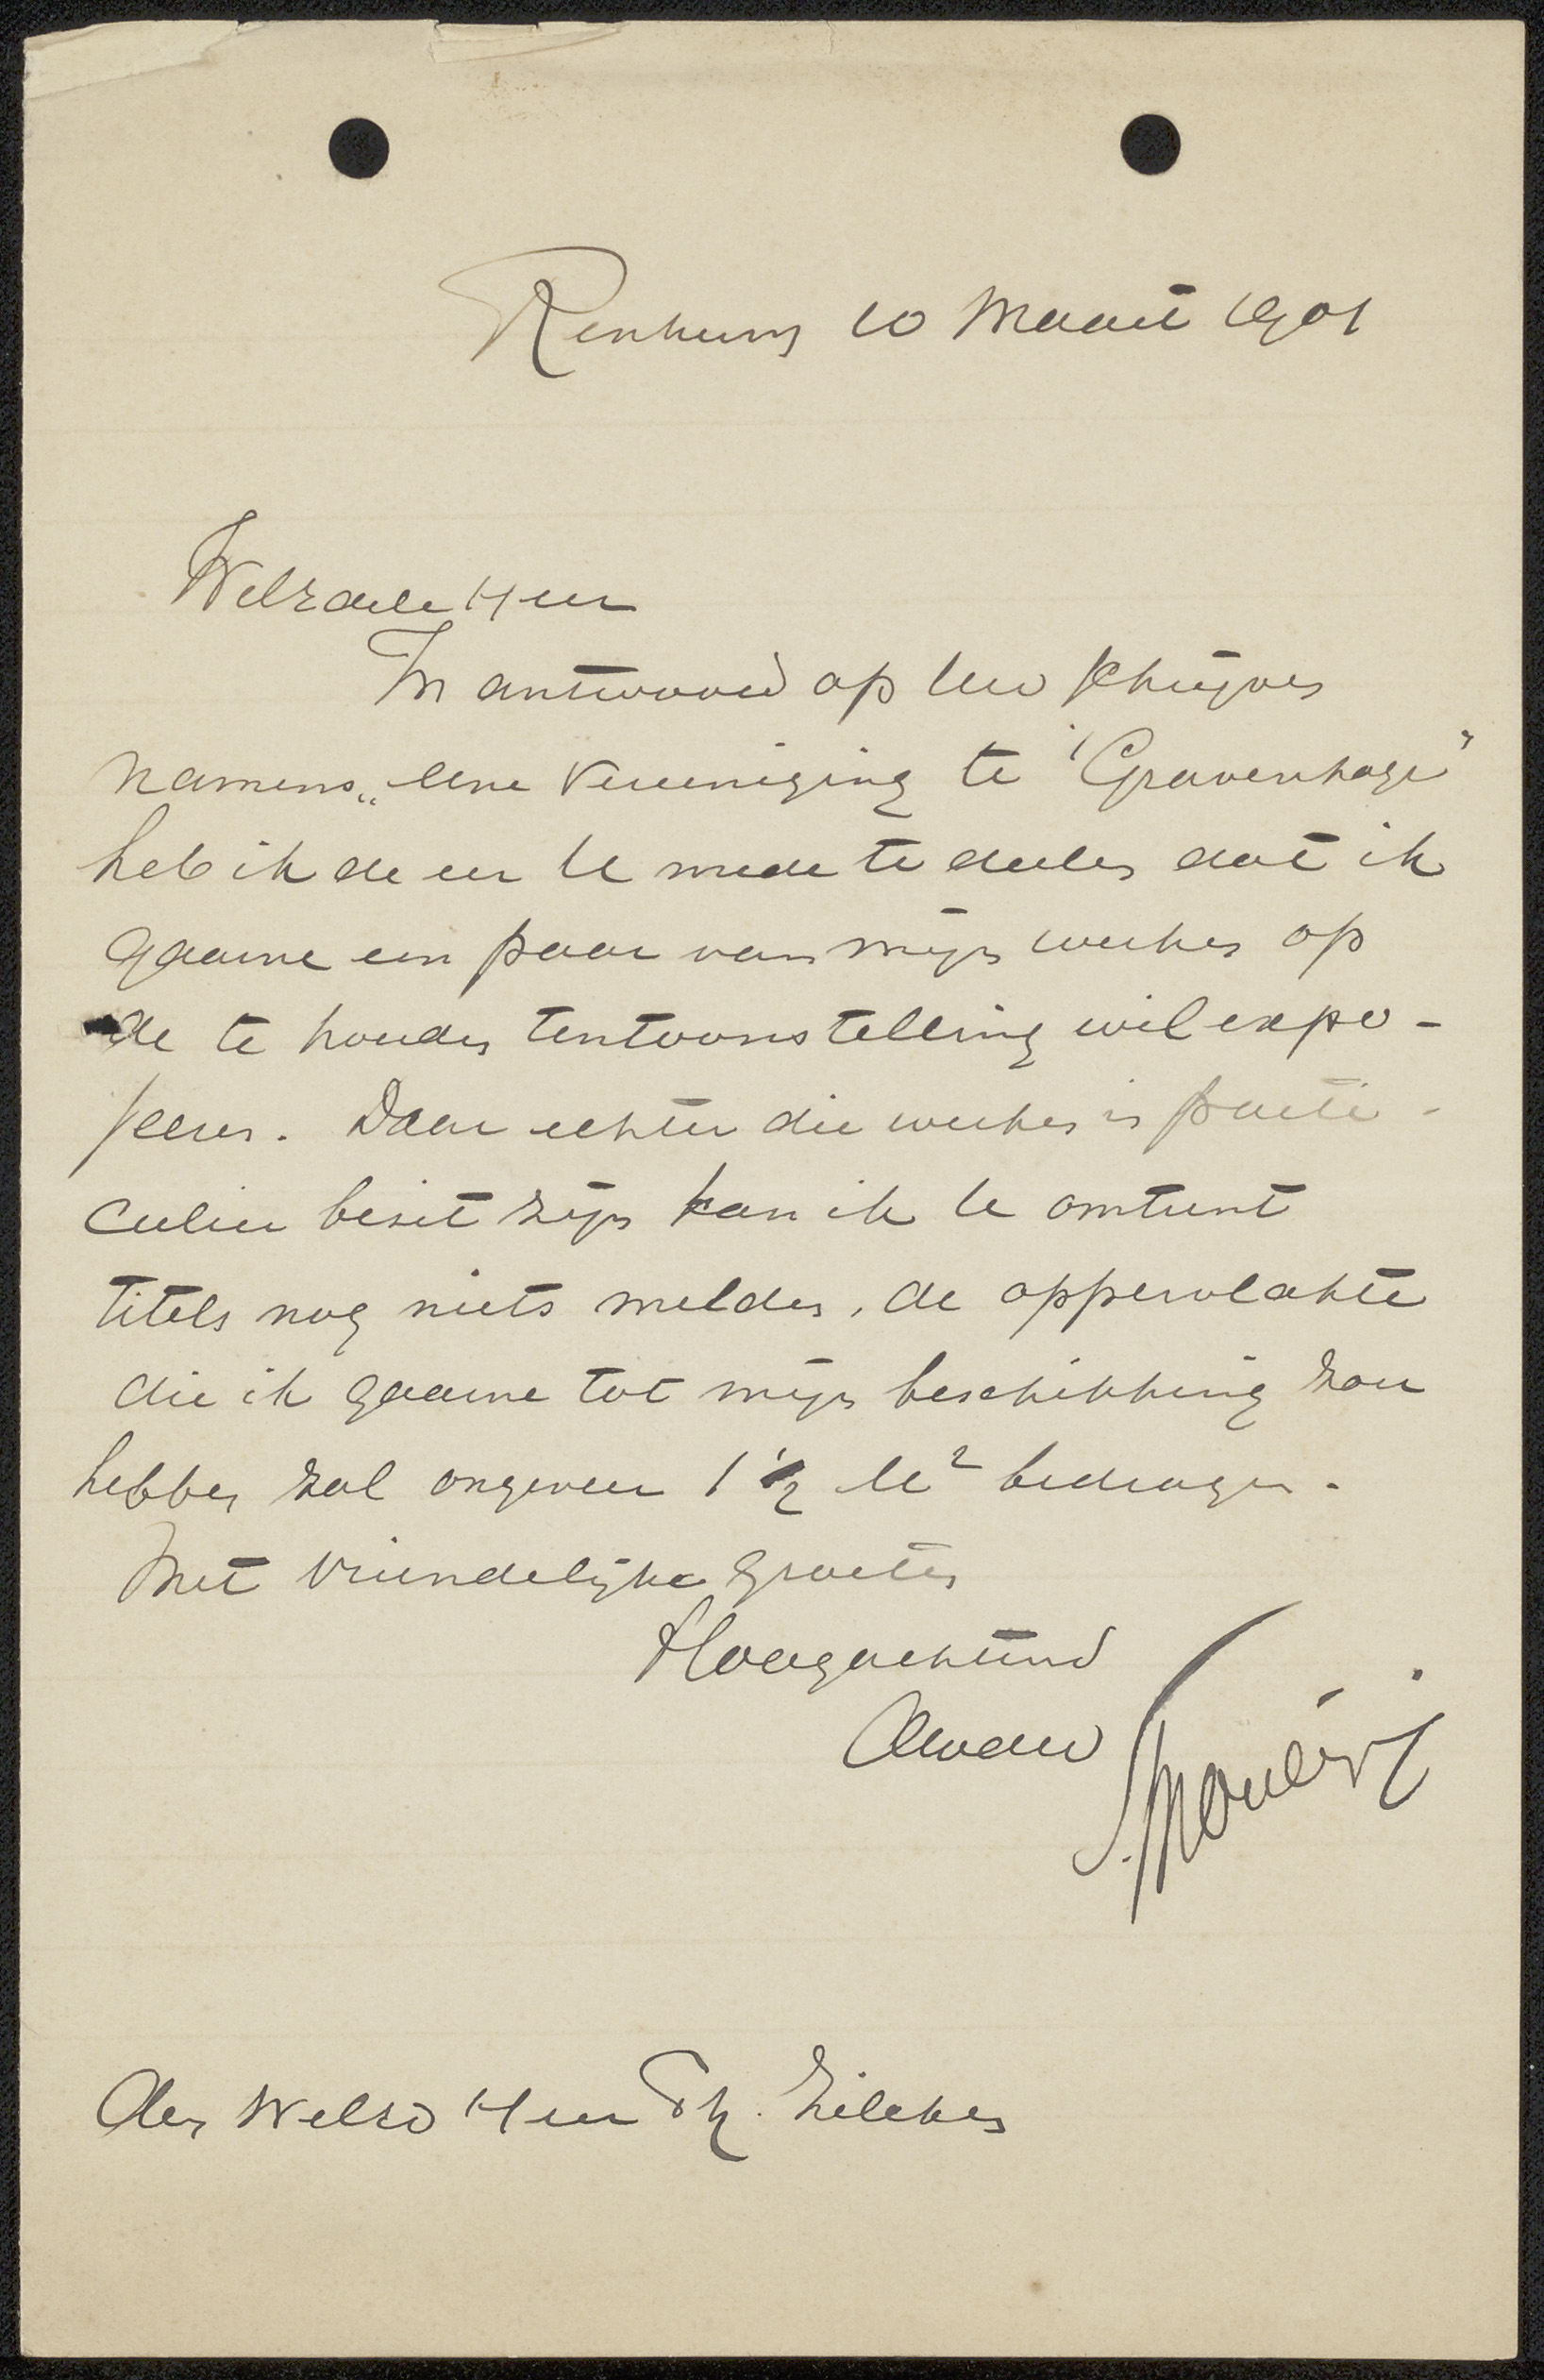 Renkum 10 Maart 1901
Weledele Heer
In antwoord op Uw schrijven
namens „eene Vereeniging te 'Gravenhage"
heb ik de eer U mede te deelen dat ik
gaarne een paar van mijn werken op
de te houden tentoonstelling wil expo-
seeren. Daar echter die werken in parti-
culier bezit zijn kan ik U omtrent
titels nog niets melden, de oppervlakte
die ik gaarne tot mijn beschikking zou
hebben zal ongeveer 1 1/2 M² bedragen.
Met vriendelijke groeten
Hoogachtend
Uwdw
S. Moulijn
Den WelEd Heer Ph. Zilcken